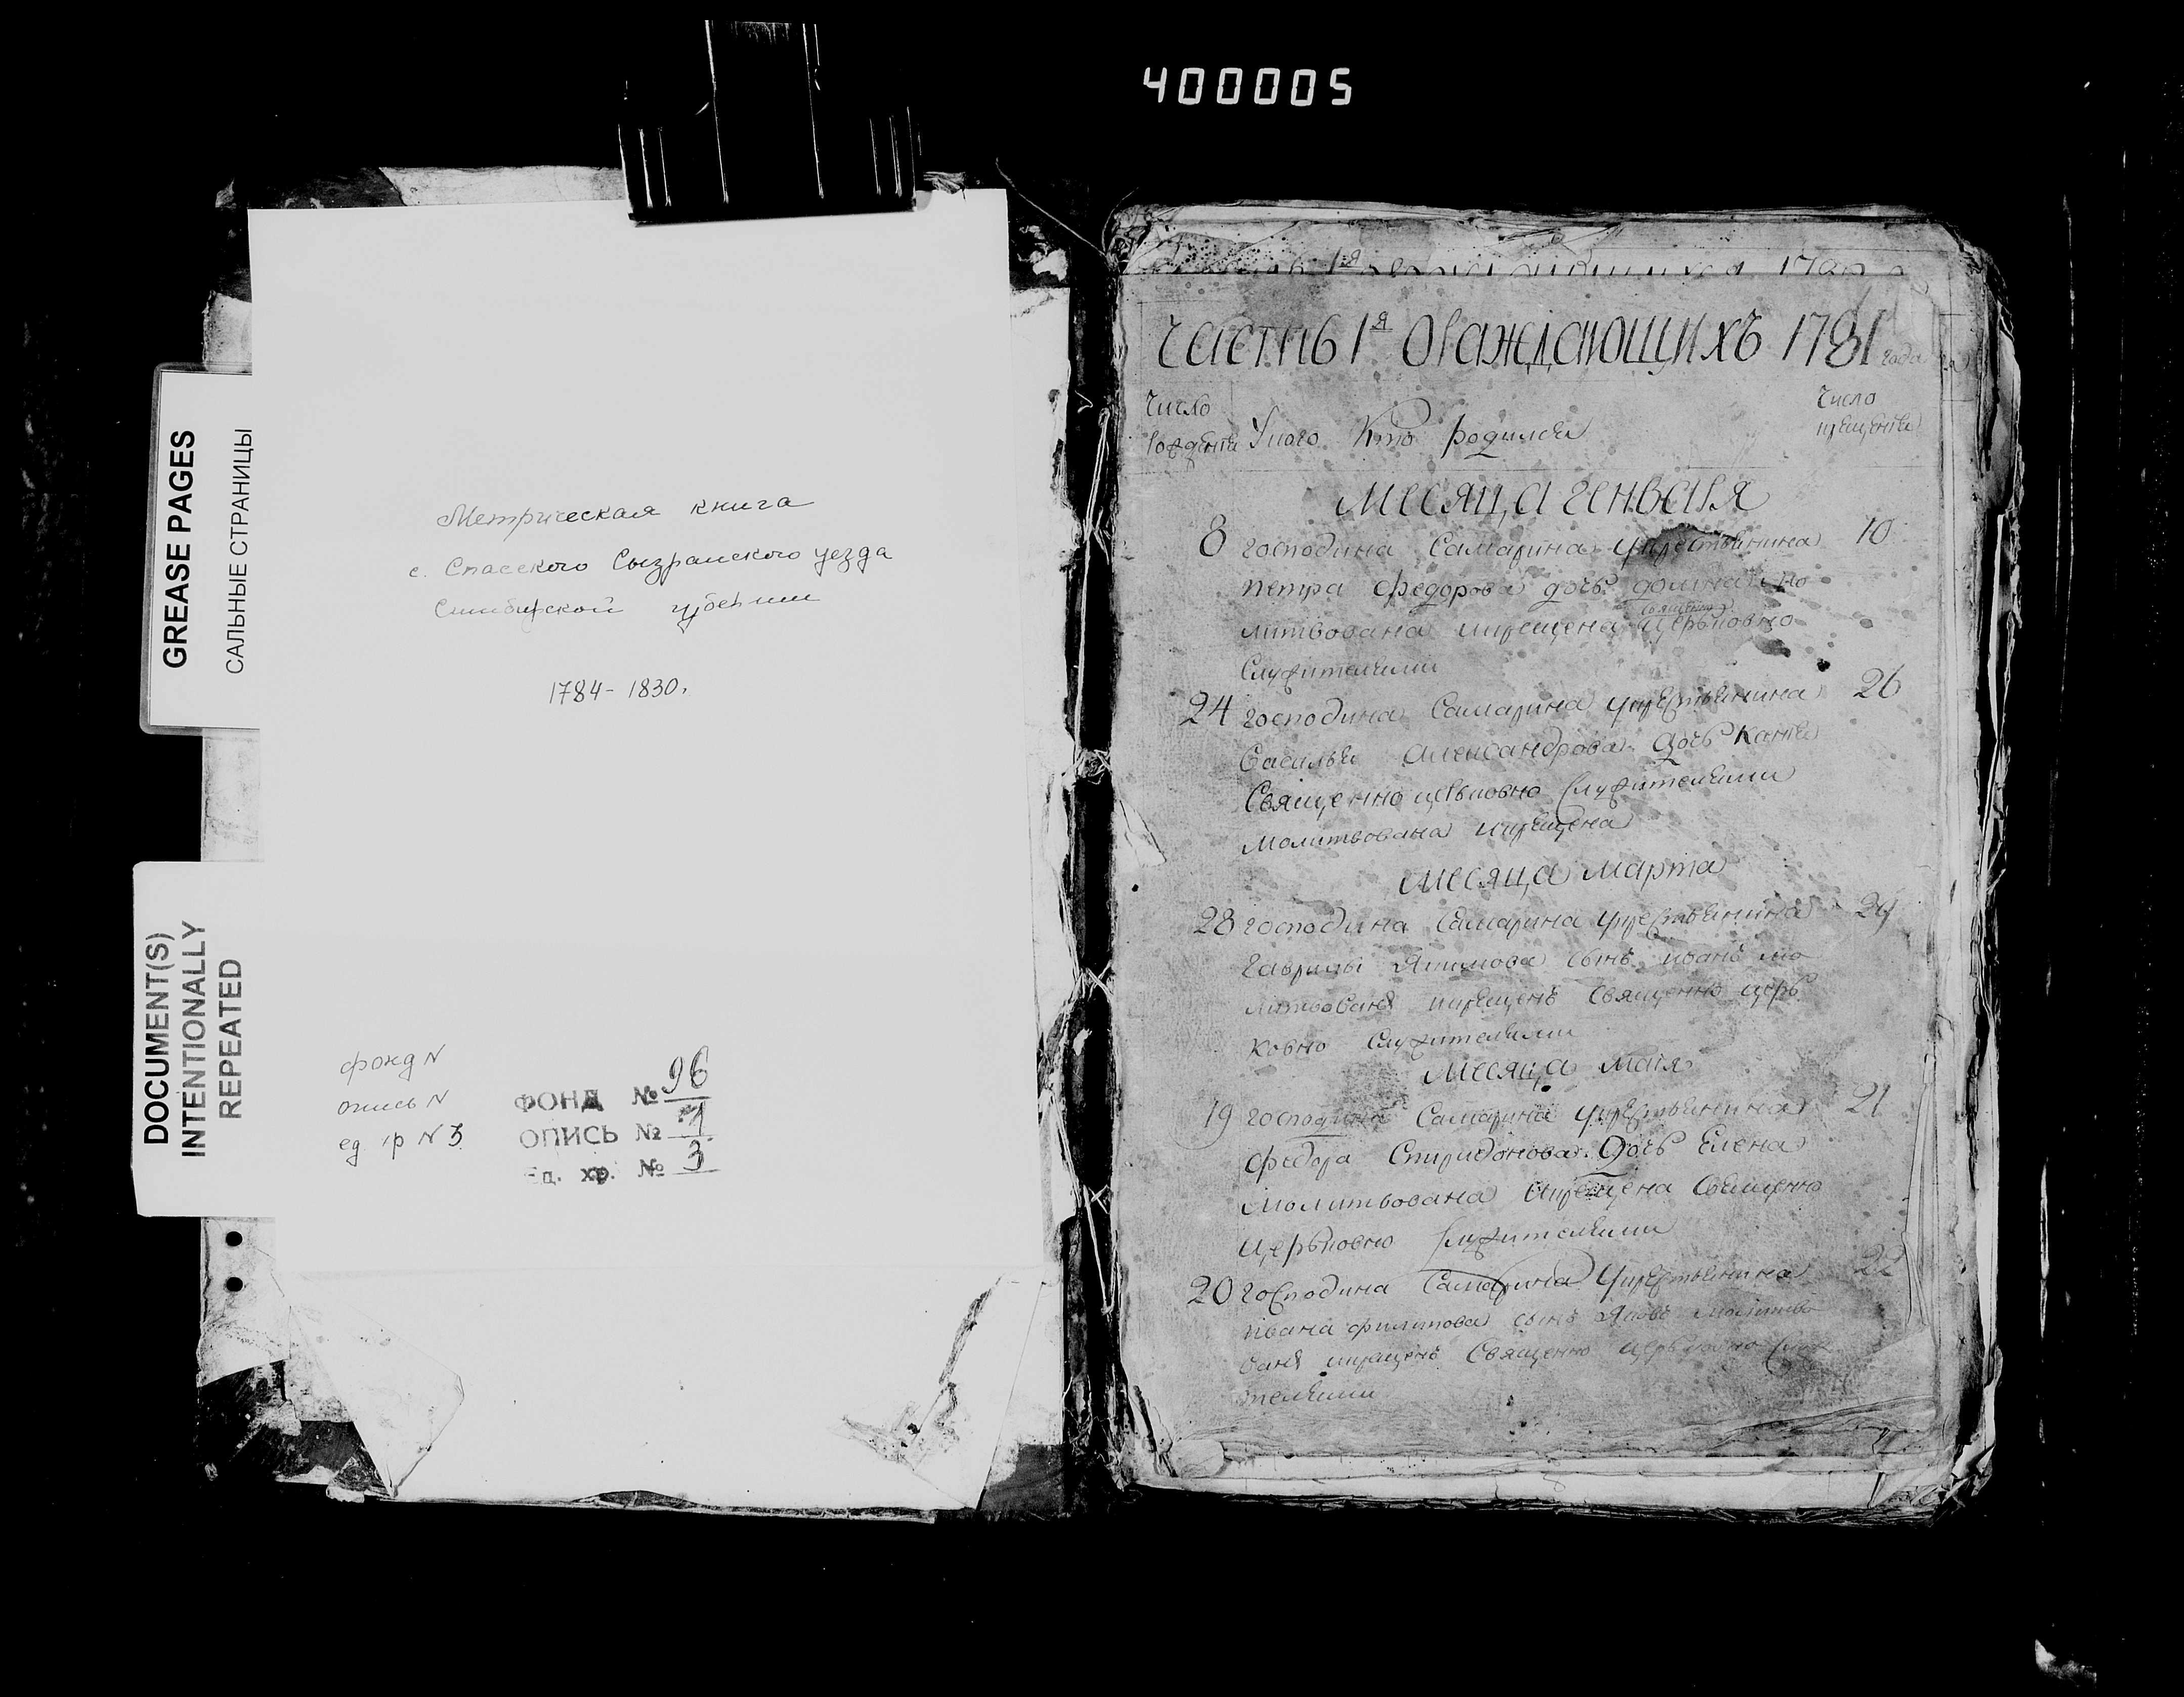 400005
GREASE PAGES
САЛЬНЫЕ СТРАНИЦЫ
DOCUMENT(S)
INTENTIONALLY
REPEATED
Метрическая книга
с. Спасского Сызранского уезда
Симбирской губернии
1784-1830.
фонд N
опись N
ед хр N 3
ФОНД № 96
ОПИСЬ № 1
Ед. хр. № 3
Часть 1я О раждающихъ 1781 года
Число
рожденiя У кого Кто родился
Число
крещенiя
Месяца генваря
8 господина Самарина у крестьянина 10
петра федорова дочь
литвована и крещена священно церьковно
служителями
24 господина Самарина у крестьянина 26
Василья Александрова дочь
Священно церковно служителями
молитвована и крещена
Месяца марта
28 господина Самарина у крестьянина 29
гаврилы сынъ иванъ мо
литвованъ и крещенъ священно церь
ковно служителями
Месяца маiя
19 господина Самарина у крестьянина 21
федора Спиридонова дочь Елена
молитвована и крещена священно
церьковно служителями
20 господина Самарина у крестьянина 22
ивана филипова сынъ Яковъ молитво
ванъ и крещенъ Священно церьковно служи
телями